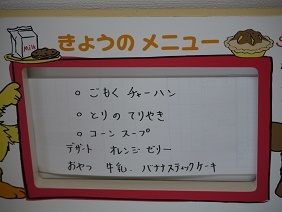 Milk
きょうの メニュー
○ ごもく チャーハン
○ とりの てりやき
○ コーン スープ
デザート オレンジ ゼリー
おやつ 牛乳. バナナスティックケーキ